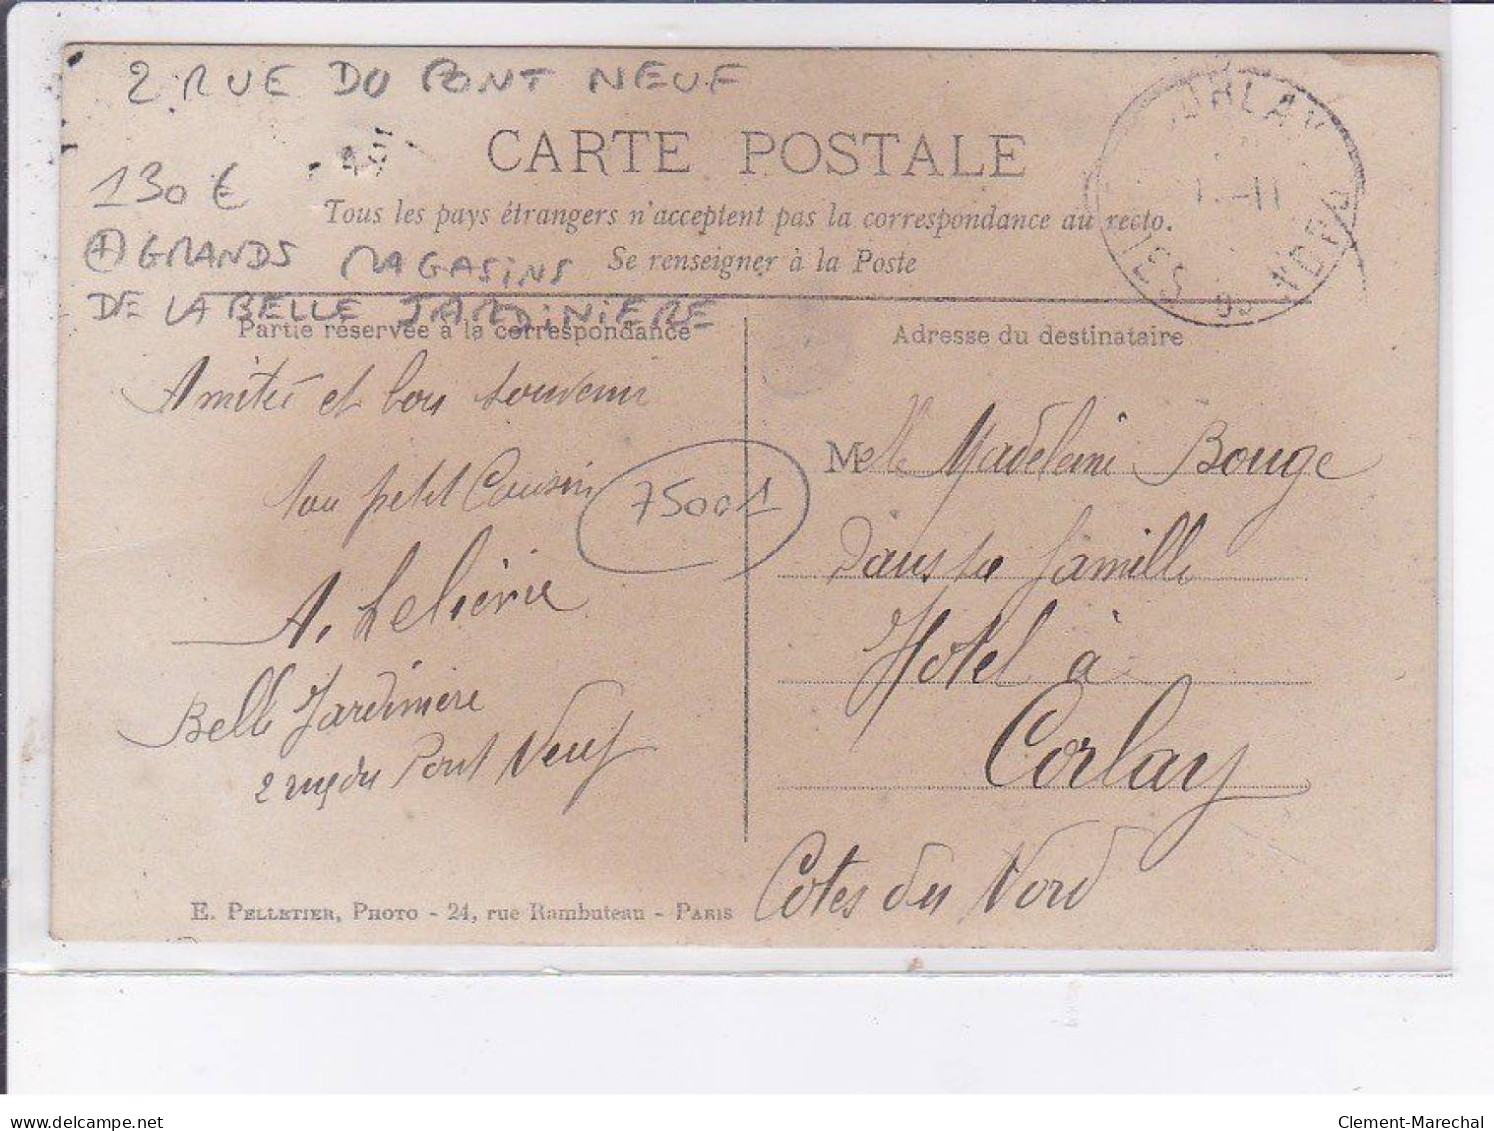 2 RUE DU PONT NEUF
CARTE POSTALE
130 €
Tous les pays étrangers n'acceptent pas la correspondance au recto.
+ GRANDS MAGASINS
Se renseigner à la Poste
DE LA BELLE JARDINIERE
Partie réservée à la correspondance
Adresse du destinataire
Amitié et bon souvenir
ton petit Cousin
75001
A. Lelièvre
Belle Jardinière
2 rue du Pont Neuf
Melle Madeleine Bouge
dans sa famille
Hotel à
Corlay
Cotes du Nord
E. PELLETIER, PHOTO - 24, rue Rambuteau - PARIS
delcampe.net
Clement-Marechal